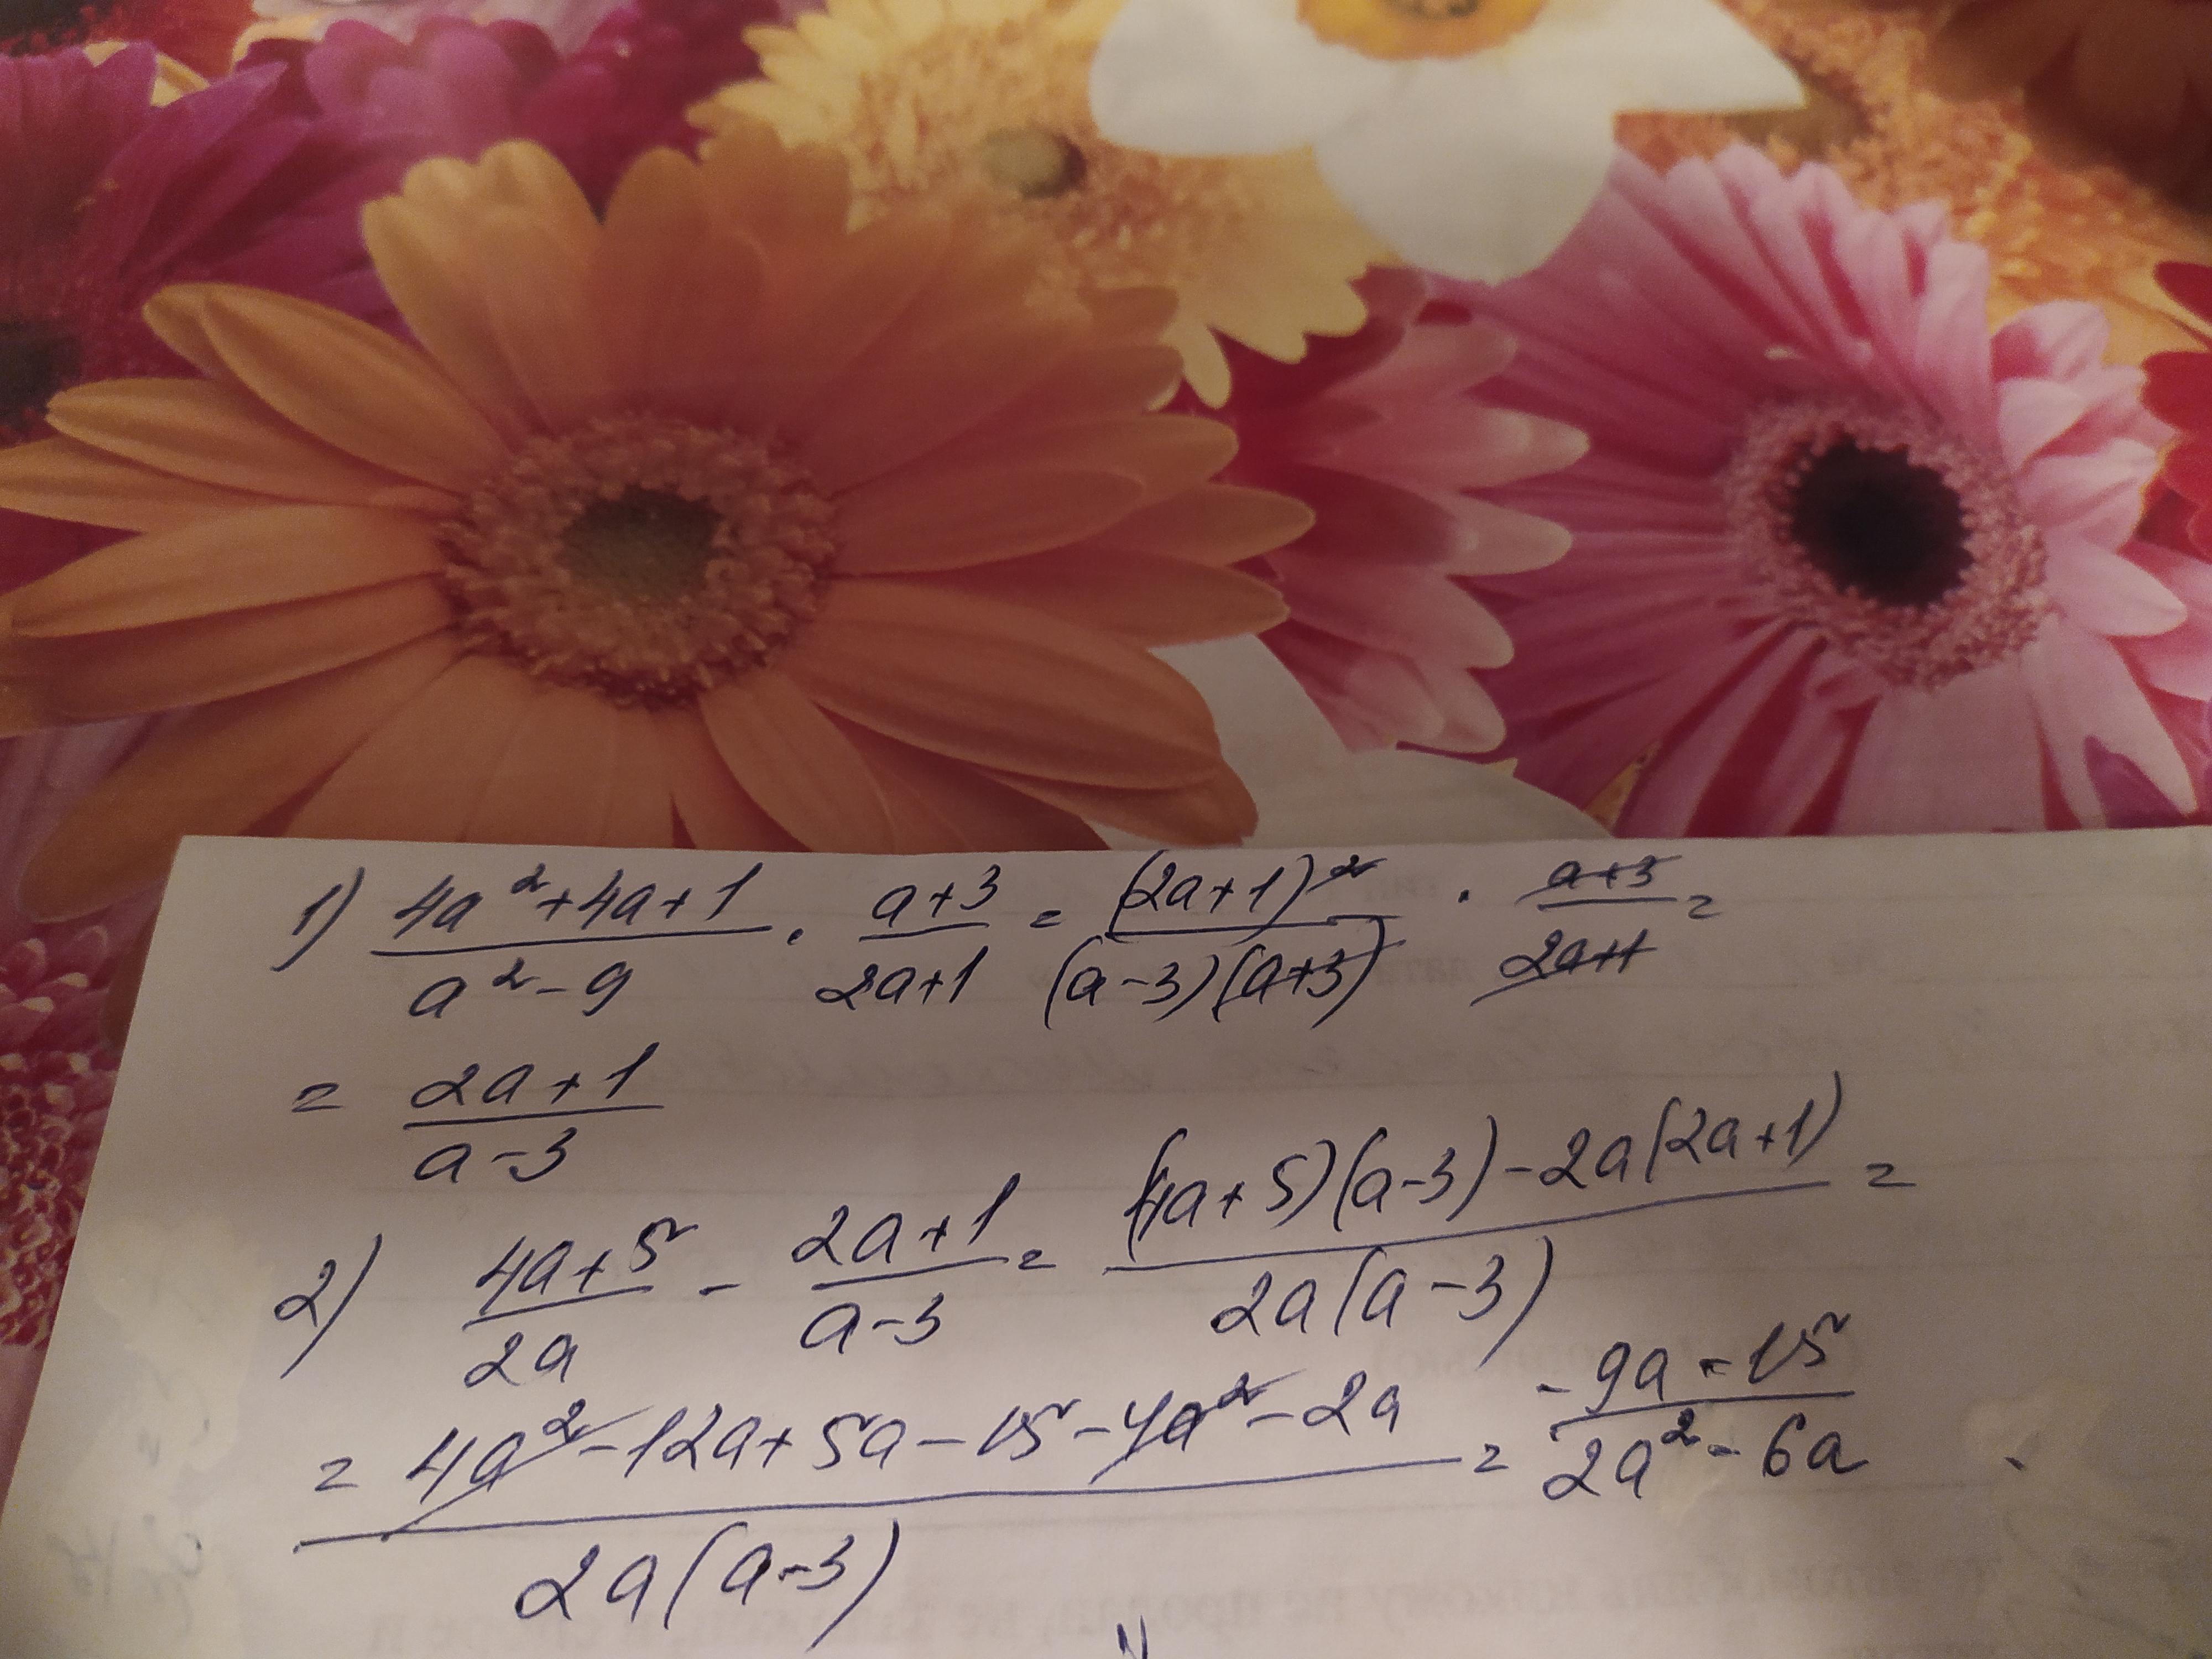 1) (4a²+4a+1)/(a²-9) · (a+3)/(2a+1) = (2a+1)²/((a-3)(a+3)) · (a+3)/(2a+1) =
= (2a+1)/(a-3)
2) (4a+5)/(2a) - (2a+1)/(a-3) = ((4a+5)(a-3)-2a(2a+1))/(2a(a-3)) =
= (4a²-12a+5a-15-4a²-2a)/(2a(a-3)) = (-9a-15)/(2a²-6a)